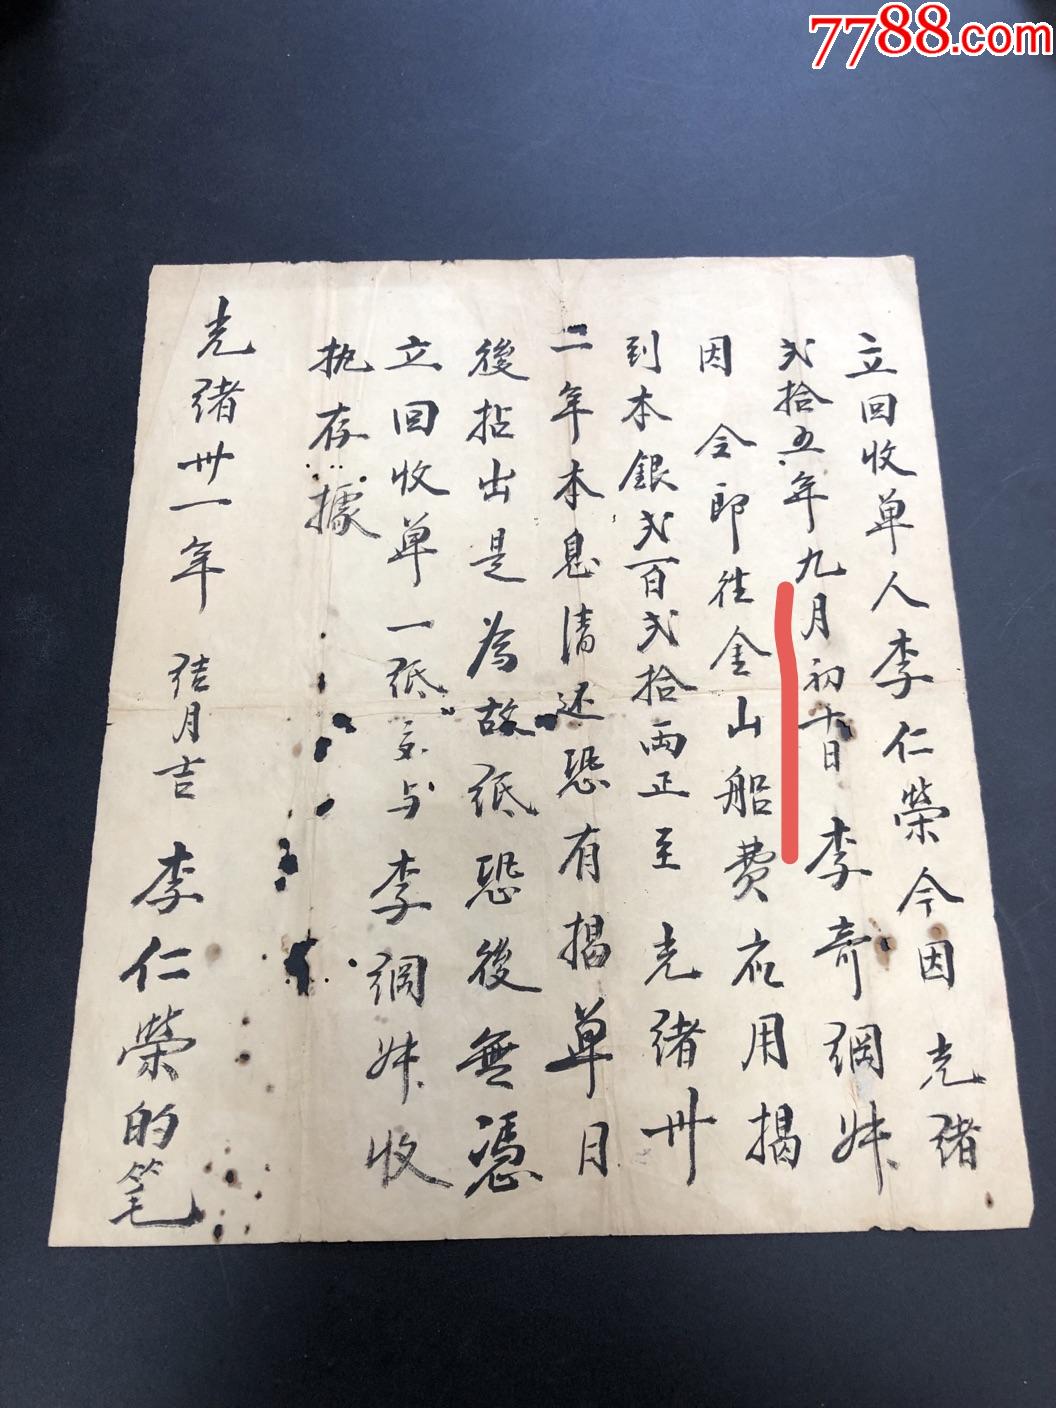 7788.com
立回收单人李仁榮今因光緒
弍拾五年九月初十日李奇綢妹
因令郎徃金山船費应用揭
到本銀弍百弍拾両正至光緒卅
二年本息清还恐有揭单日
後拈出是為故纸恐後無憑
立回收单一纸交与李綢妹收
执存據
光緒卅一年 结月吉 李仁榮的笔